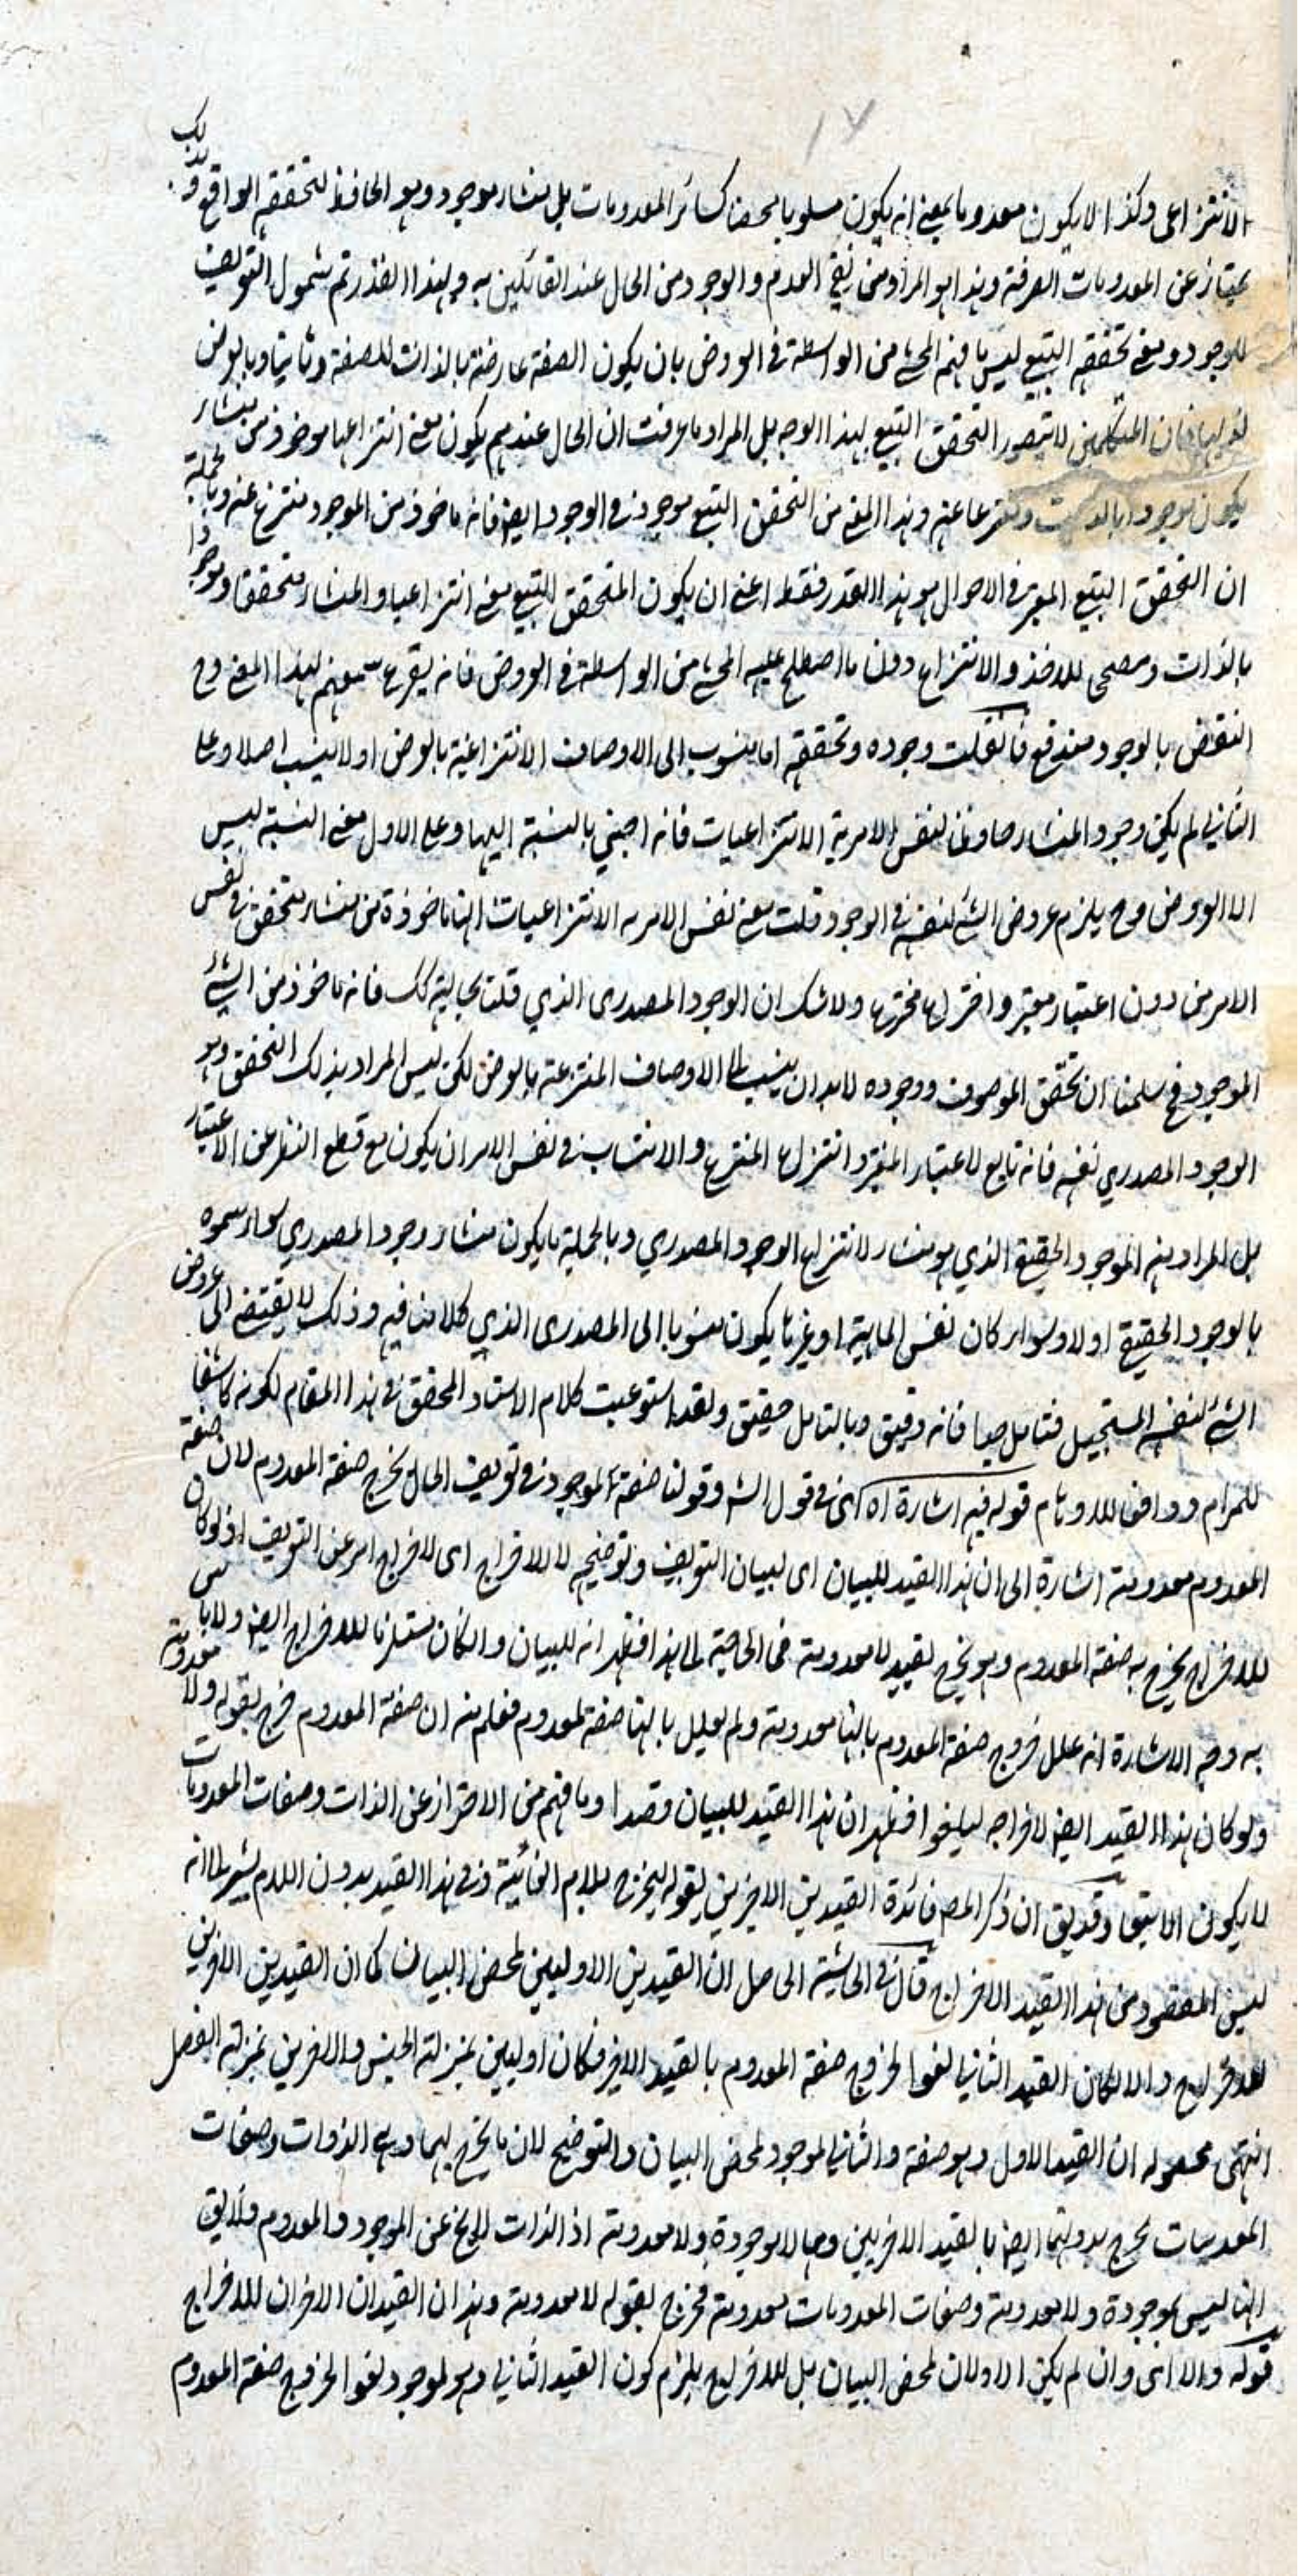 الانتزاعى وكذا لا يكون معدوما بمعنى انه يكون مسلوبا محضا كسائر المعدومات بل منشاء موجود وهو الحافظ لتحققه الواقعى وبذلك
يمتاز عن المعدومات الصرفة وهذا هو المراد من نفى العدم والوجود من الحال عند القائلين به وبهذا القدر تم شمول التعريف
للوجود ومعنى تحققه التبعى ليس ما فهم المحشى من الواسطة فى العروض بان يكون الصفة عارضة بالذات للصفة وثانيا وبالعرض
فان المتكلمين لا يتصور التحقق التبعى بهذا الوجه بل المراد ما عرفت ان الحال عندهم يكون معنى انتزاعيا ماخوذ من منشاء
يكون موجودا بالذات ومنتزعا عنه وهذا المعنى من التحقق التبعى موجود فى الوجود ايضا فانه ماخوذ من الموجود منتزع عنه وبالجملة
ان التحقق التبعى المعتبر فى الاحوال هو هذا القدر فقط اعنى ان يكون المتحقق التبعى معنى انتزاعيا والمنشاء متحققا وموجودا
بالذات ومصحح للاخذ والانتزاع دون ما اصطلح عليه المحشى من الواسطة فى العروض فانه يقرع سمعهم لهذا المعنى وح
النقض بالوجود مندفع فان قلت وجوده وتحققه اما ينسوب الى الاوصاف الانتزاعية بالعرض او لا ينسب اصلا وعلى
الثانى لم يكن وجود المنشاء حافظا لنفس الامرية الانتزاعيات فانه اجنبي بالنسبة اليها وعلى الاول معنى النسبة ليس
الا العروض وح يلزم عروض الشئ لنفسه فى الوجود قلت معنى نفس الامرية الانتزاعيات انها ماخوذة من منشاء متحقق فى نفس
الامر من دون اعتبار معتبر واختراع مخترع ولا شك ان الوجود المصدرى الذي قلت بحاليته كك فانه ماخوذ من الشئ
الموجود فح سلمنا ان تحقق الموصوف ووجوده لابد ان ينسب الى الاوصاف المنتزعة بالعرض لكن ليس المراد بذلك التحقق وهو
الوجود المصدري نفسه فانه تابع لاعتبار المعتبر وانتزاع المنتزع والانتساب فى نفس الامر ان يكون مع قطع النظر عن الاعتبار
بل المراد منه الموجود الحقيقى الذي هو منشاء لانتزاع الوجود المصدري وبالجملة ما يكون منشاء وجود المصدري سواء سموه
بالوجود الحقيقى اولا وسواء كان نفس الماهية او غيرها يكون منسوبا الى المصدرى الذي كلامنا فيه وذلك لا يقتضى الى عروض
الشئ لنفسه المستحيل فتامل جدا فانه دقيق وبالتامل حقيق ولقد استوعبت كلام الاستاد المحقق فى هذا المقام لكونه كاشفا
للمرام ودافعا للاوهام قوله فيه اشارة اه اى فى قول الشه وقولنا صفة لموجود فى تعريف الحال يخرج صفة المعدوم لان صفة
المعدوم معدومة اشارة الى ان هذا القيد للبيان اى لبيان التعريف وتوضيحه لا للاخراج اى لاخراج امر عن التعريف اذ لو كان
للاخراج يخرج به صفة المعدوم وهو يخرج بقيد لا معدومة فما الحاجة الى هذا فظهر انه للبيان وان كان مستلزما للاخراج ايضا ولا باس
به وجه الاشارة انه علل خروج صفة المعدوم بانها معدومة ولم يعلل بانها صفة لمعدوم فعلم منه ان صفة المعدوم خرج بقوله ولا معدومة
ولو كان هذا القيد ايضا لاخراجه ليلغوا فظهر ان هذا القيد للبيان قصدا وما فهم من الاحتراز عن الذات وصفات المعدومات
لا يكون الا تبعا وقد يق ان ذكر المصه فائدة القيدين الاخرين بقوله ليخرج بلام الغائية وفى هذا القيد بدون اللام يشير الى انه
ليس المقصود من هذا القيد الاخراج قال فى الحاشية الحاصل ان القيدين الاوليين لمحض البيان كما ان القيدين الاخرين
للاخراج والا لكان القيد الثانى لغوا لخروج صفة المعدوم بالقيد الاخير فكان اوليين بمنزلة الجنس والاخرين بمنزلة الفصل
انتهى محصوله ان القيد الاول وهو صفة والثانى لموجود لمحض البيان والتوضيح لان ما يخرج بهما وهى الذوات وصفات
المعدومات يخرج بدونهما ايضا بالقيد الاخريين وهما لا موجودة ولا معدومة اذ الذات لا يخ عن الموجود والمعدوم فلا يق
انها ليس بموجودة ولا معدومة وصفات المعدومات معدومة فخرج بقوله لا معدومة وهذان القيدان الاخران للاخراج
قوله والا اى وان لم يكن الاولان لمحض البيان بل للاخراج يلزم كون القيد الثانى وهو لموجود لغوا لخروج صفة المعدوم